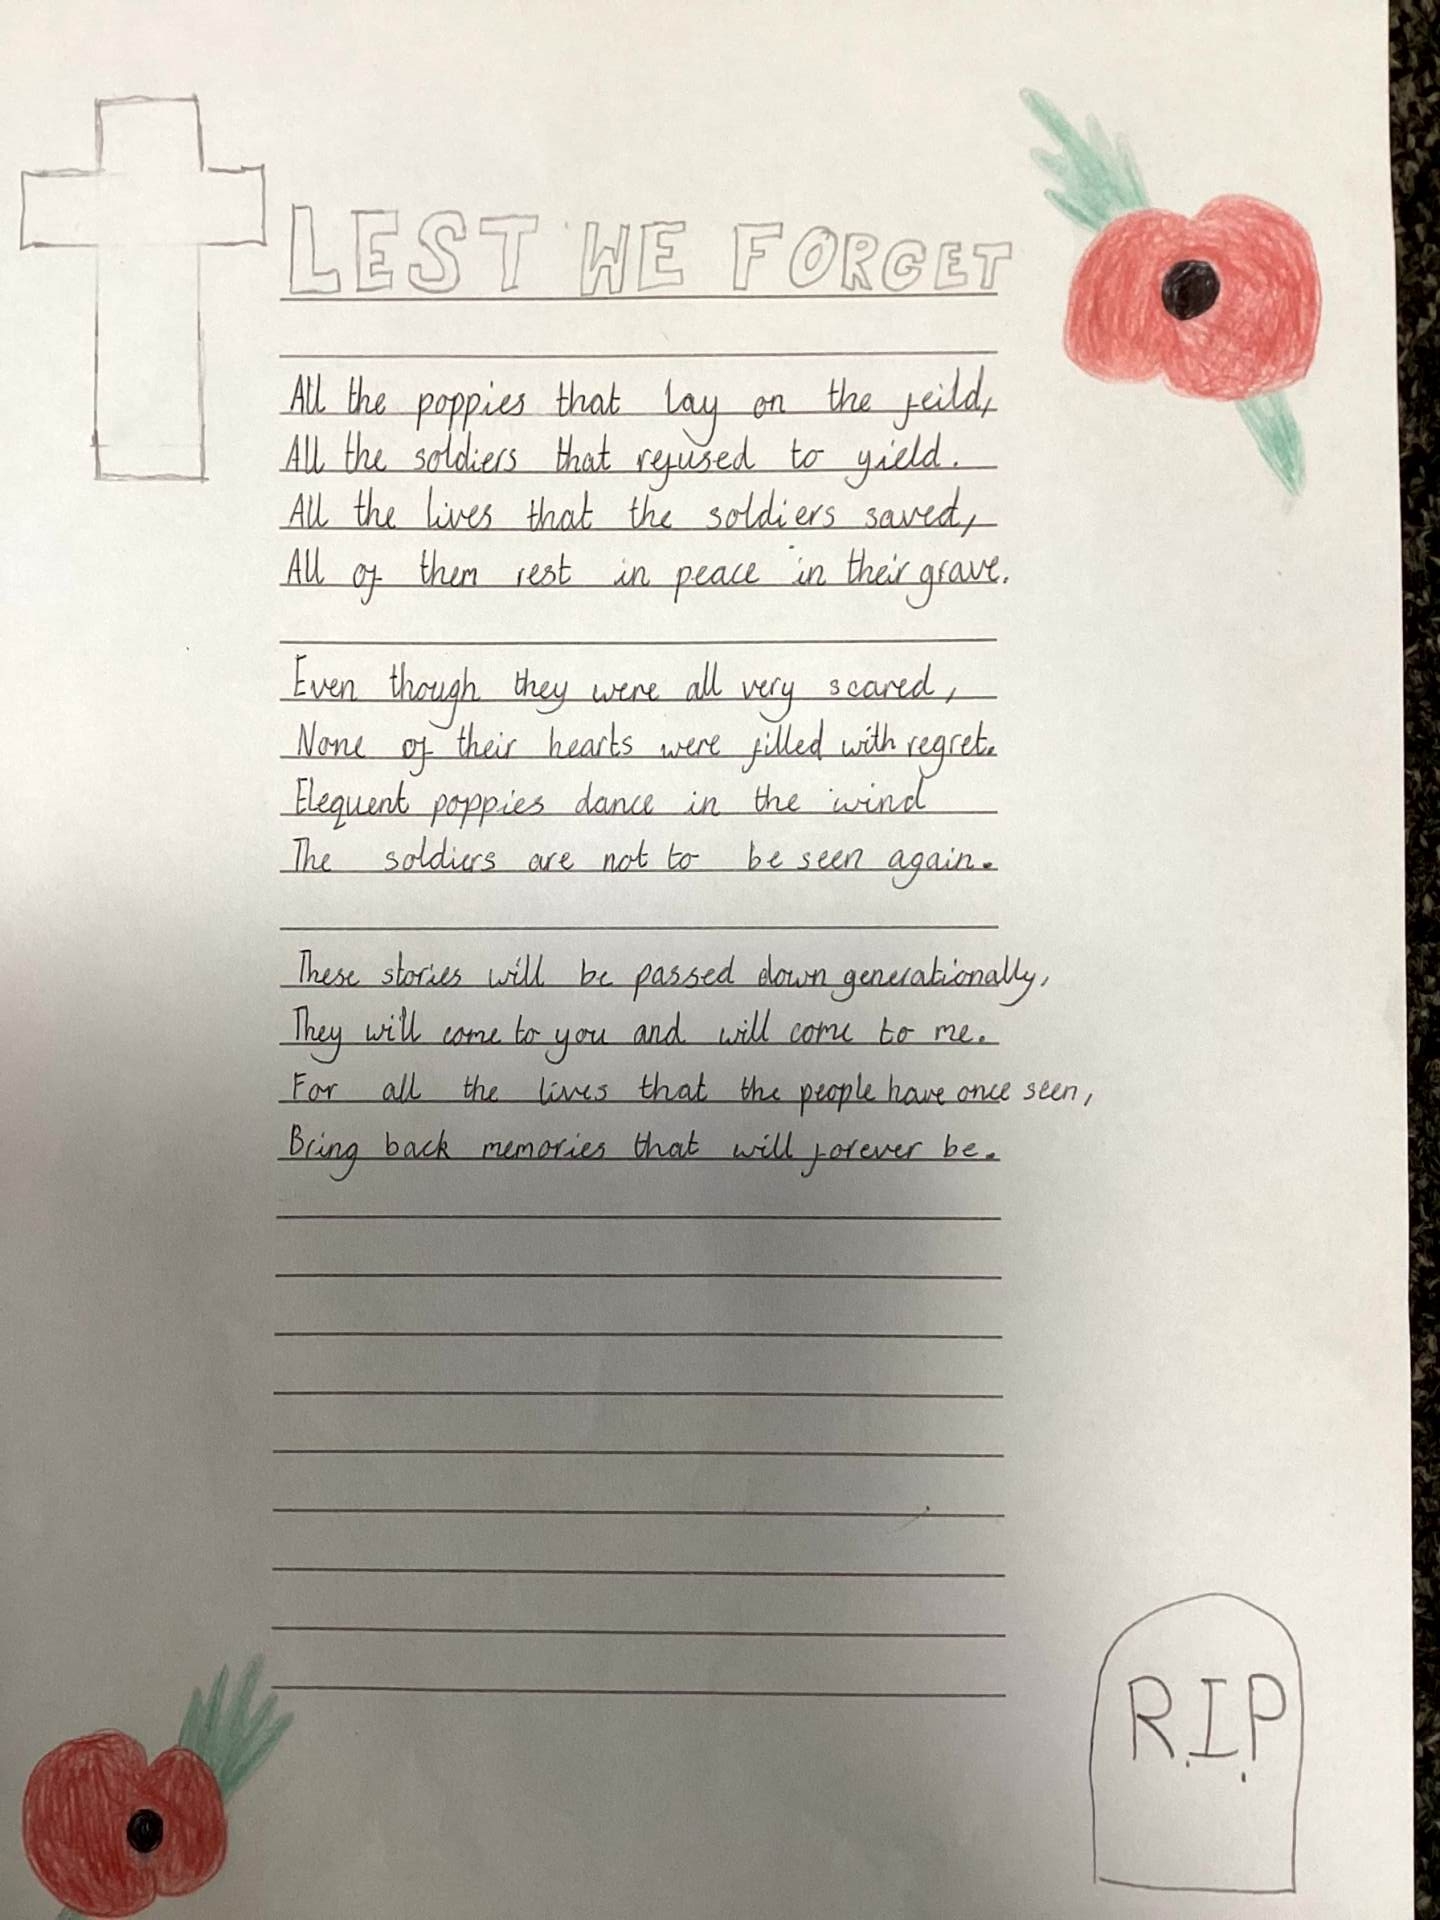 LEST WE FORGET
All the poppies that lay on the feild,
All the soldiers that refused to yield.
All the lives that the soldiers saved,
All of them rest in peace in their grave.
Even though they were all very scared,
None of their hearts were filled with regret.
Elequent poppies dance in the wind
The soldiers are not to be seen again.
These stories will be passed down generationally,
They will come to you and will come to me.
For all the lives that the people have once seen,
Bring back memories that will forever be.
R.I.P